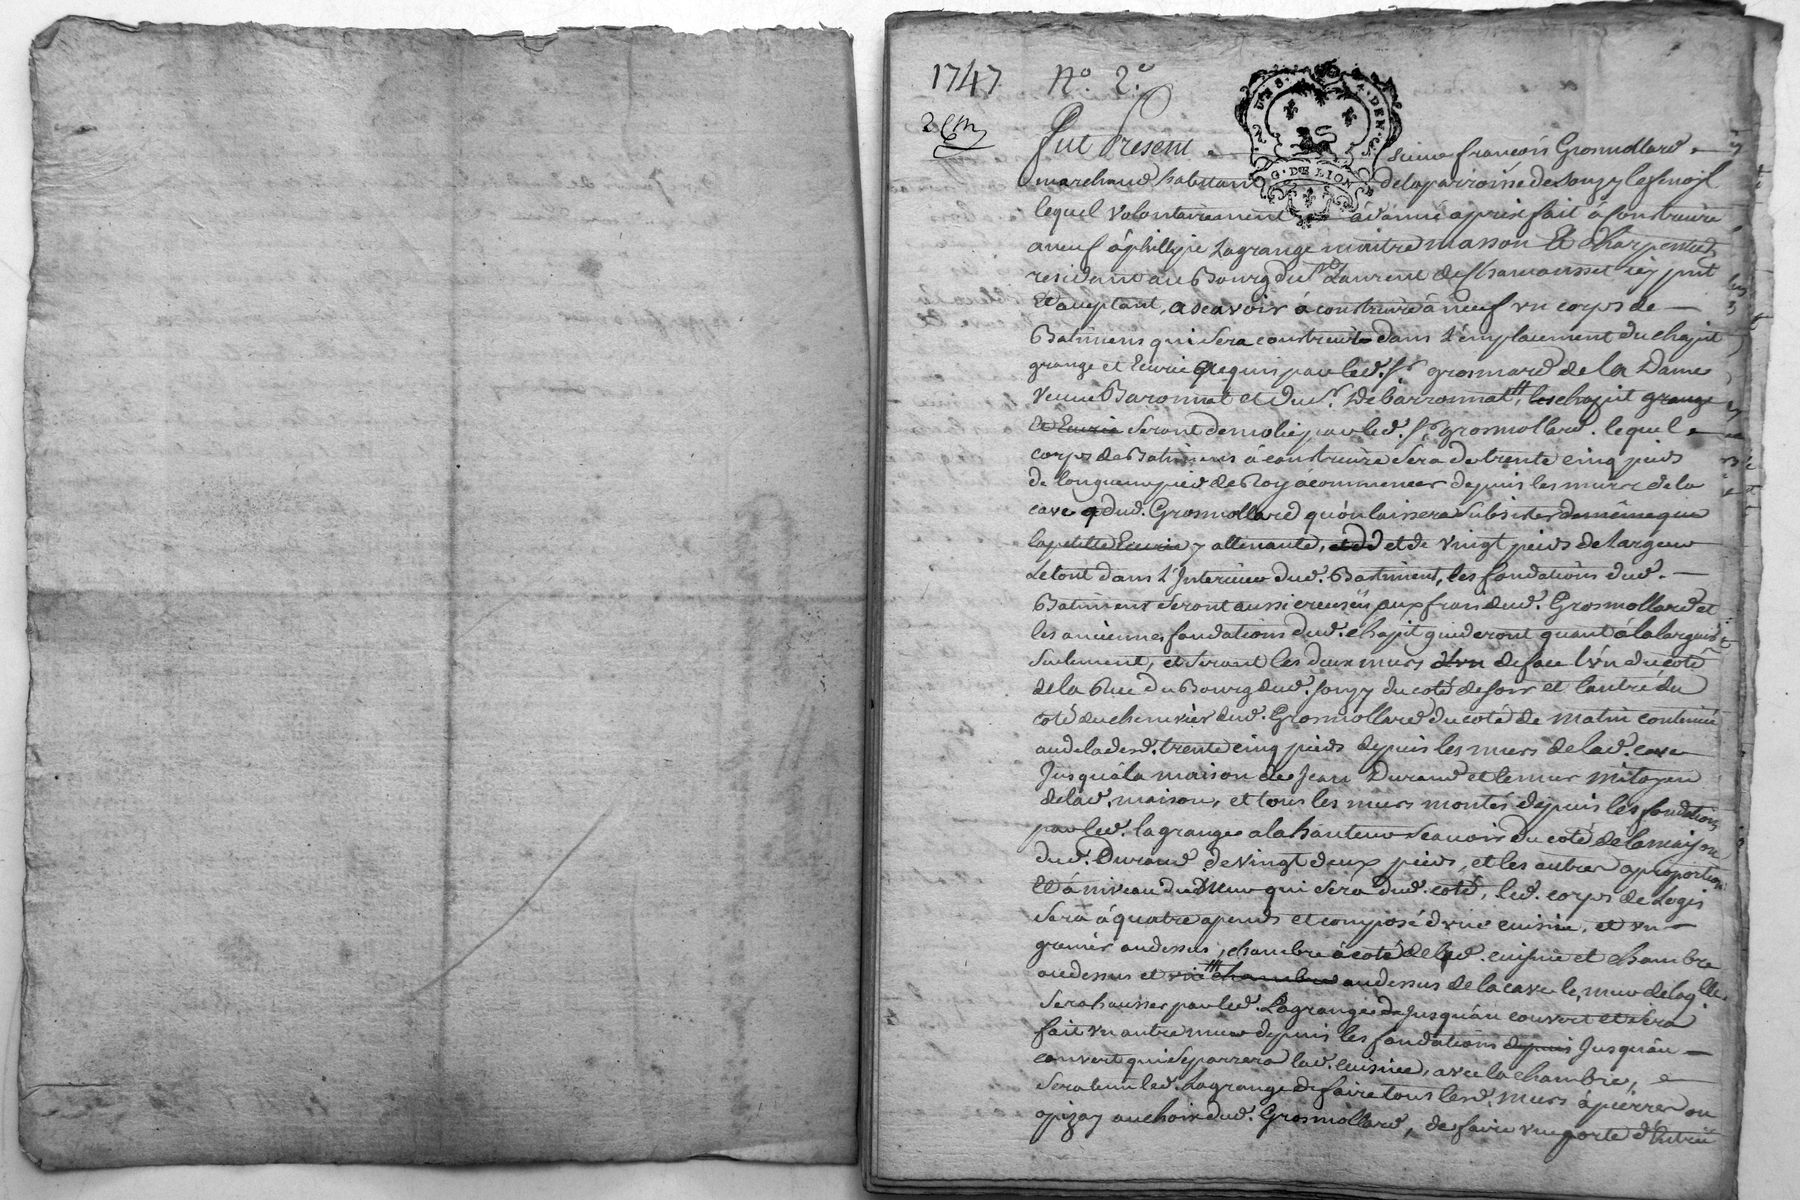 1747 No. 2e
G. DE LION
Fut Present sieur francois Grosmollard
marchand habitant de la parroisse de Souzy
lequel volontairement a donné a prix fait à construire
a neuf à phillipe Lagrange maitre masson Et Charpentier
residant au Bourg du St Laurent de Chamousset icy pnt
Et aceptant, a scavoir à construire à neuf vn corps de
Batimens qui sera construit dans l'emplacement du chapit
grange et Ecurie aequis par led. Sr grosmard de la Dame
veuve Baronnat et du Sr. De barronnat, les chapit grange
et Ecurie seront demolie par led. Sr grosmollard. lequel
corps de Batimens à construire sera de trente cinq pieds
de longueur pied de Roy à commencer depuis les murs de la
cave dud. Grosmollard qu'on laissera subsister de meme que
la petitte Ecurie y attenante, et de vingt pieds de largeur
Le tout dans L'Interieur dud. Bastiment, les fondations dud.
Batiment seront aussi creusés aux frais dud. Grosmollard et
les anciennes fondations dud. chapit guideront quant à la largeur
seulement, et seront les deux murs d'vn de face l'vn du coté
de la Rue du Bourg dud. Souzy du coté de soir et l'autre du
coté du chenevier dud. Grosmollard du coté de matin continué
au dela desd. trente cinq pieds depuis les murs de lad. cave
Jusqu'à la maison de Jean Durand et le mur mitoyen
de lad. maison, et tous les murs montés depuis les fondations
par led. lagrange a la hauteur scavoir du coté de la maison
dud. Durand de vingt deux pieds, et les autres a proportion
Et à niveau du Mur qui sera dud. coté, led. corps de Logis
sera à quatre apends et composé d'vne cuisine, et vn
grenier au dessus, chambre à coté de lad. cuisine et chambre
au dessus et vne chambre au dessus de la cave le mur de laqlle.
sera hausser par led. Lagrange de Jusqu'au couvert et sera
fait vn autre mur depuis les fondations depuis Jusqu'au
couvert qui separera lad. cuisine, avec la chambre,
sera tenu led. Lagrange de faire tous lesd. murs à pierres ou
apizay au choix dud. Grosmollard, de faire vne porte d'Entrée